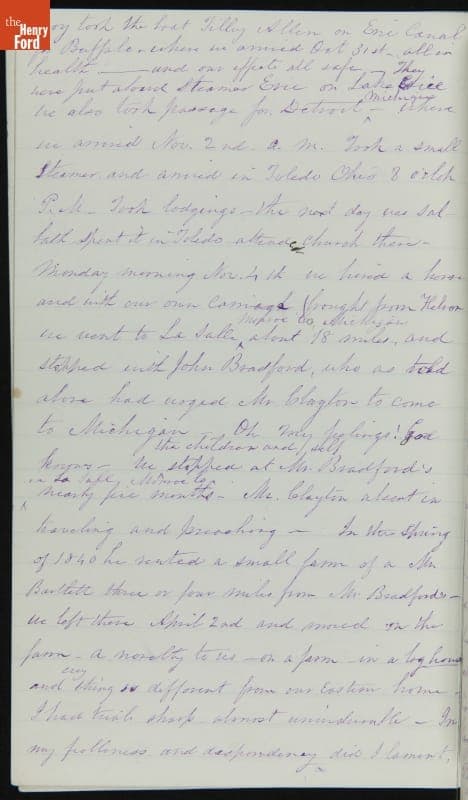 the
Henry
Ford
took the boat Tilly Allen on Erie Canal
Buffalo where we arrived Oct 31st all in
health — and our effects all safe — They
were put aboard Steamer Erie on Lake Erie
Michigan
we also took passage for Detroit — where
we arrived Nov. 2nd a. m. Took a small
Steamer and arrived in Toledo Ohio 8 oclk
P. M. Took lodgings — the next day was Sab-
bath spent it in Toledo attend church there —
Monday morning Nov. 4th we hired a horse
and with our own carriage brought from Nelson
Monroe Co, Michigan
we went to La Salle about 18 miles, and
stopped with John Bradford, who as told
above had urged Mr Clayton to come
to Michigan — Oh my feelings! God
the children and self
knows — We stopped at Mr. Bradford's
in La Salle, Monroe Co
nearly six months — Mr. Clayton absent in
traveling and preaching — In the Spring
of 1840 he rented a small farm of a Mr
Bartlett three or four miles from Mr. Bradford's —
we left there April 2nd and moved on the
farm — a novelty to us — on a farm — in a log house
evry
and thing so different from our Eastern home —
I had trials sharp almost unindurable — In
my and despondency did I lament,